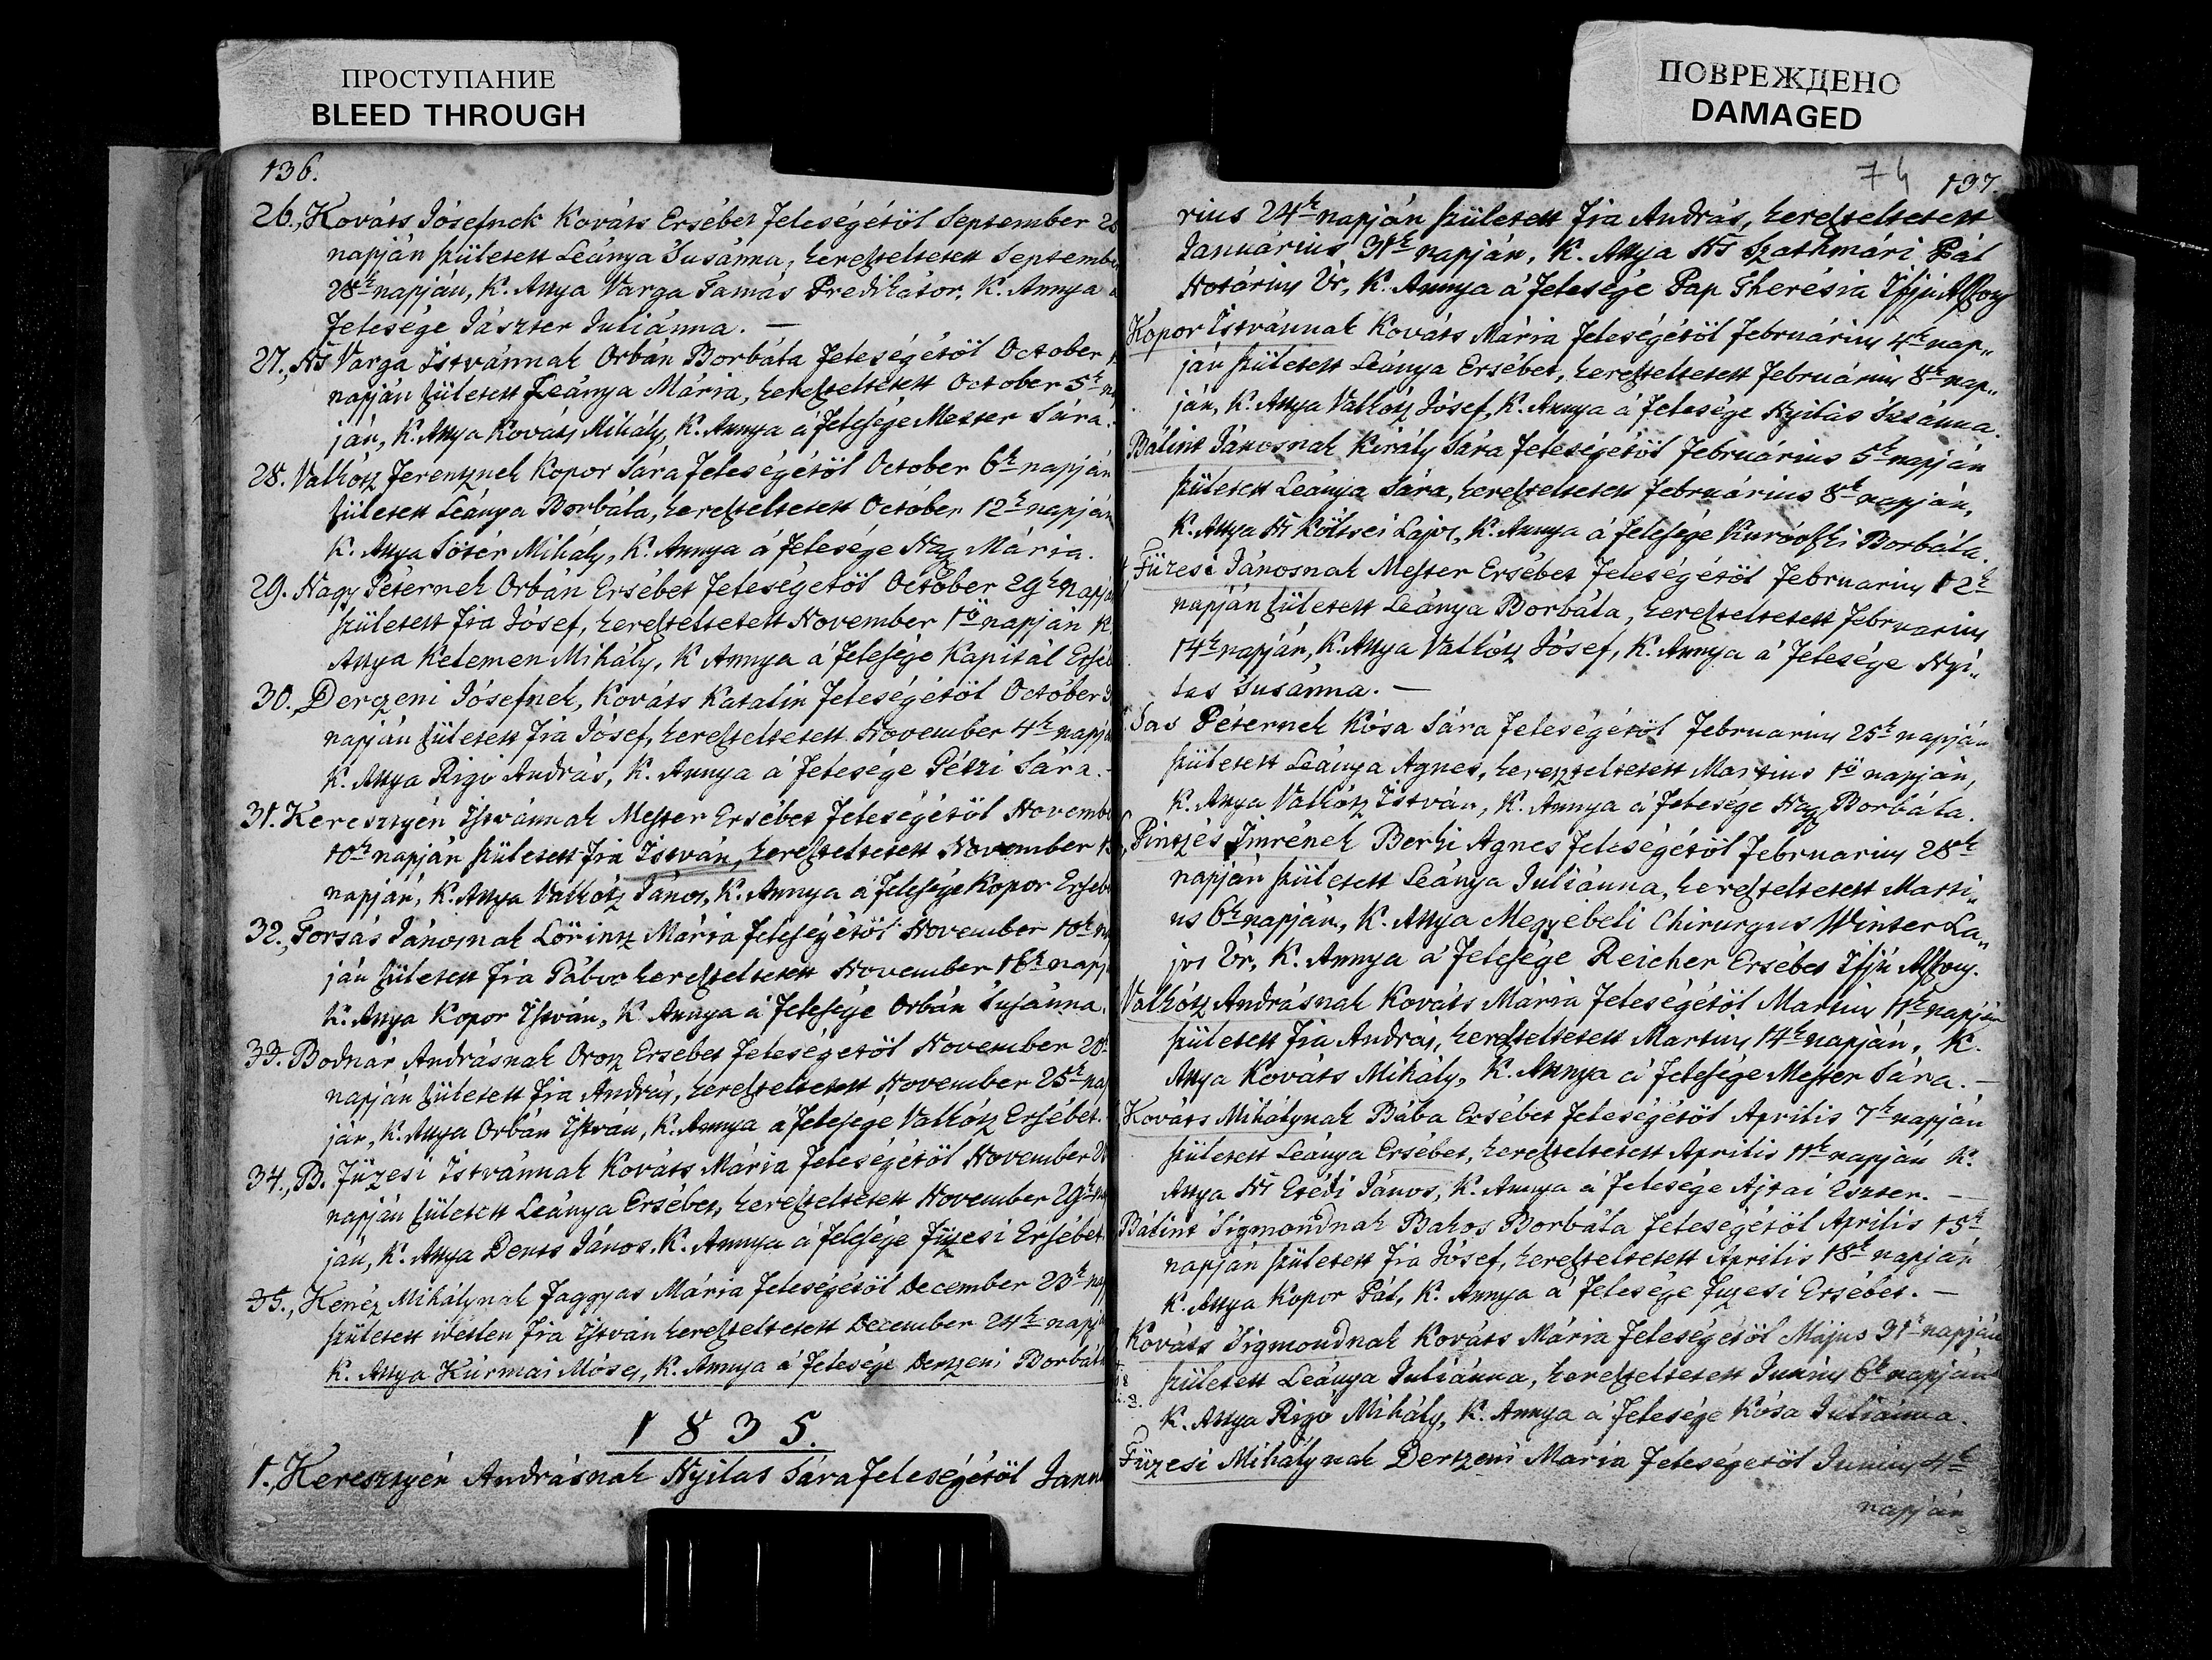 ПРОСТУПАНИЕ
BLEED THROUGH
ПОВРЕЖДЕНО
DAMAGED
136.
26., Kováts Jósefnek Kováts Ersébet feleségétöl September
napján született Leánya Susánna, kereszteltetett Septemb
28k napján, K. Attya Varga Tamás Predikátor, K. Annya
felesége Jászter Juliánna. —
27., Ns Varga Istvánnak Orbán Borbála feleségétöl October
napján született Leánya Mária, kereszteltetett October 5k n
ján, K. Attya Kováts Mihály, K. Annya á felesége Mester Sára.
28. Valkótz Ferentznek Kopor Sára feleségétöl October 6k napján
született Leánya Borbála, kereszteltetett Octóber 12k napján
K. Attya Sötér Mihály, K. Annya á felesége Nagy Mária.
29. Nagy Péternek Orbán Ersébet feleségetöl Octóber 29k napjá
született fia Jósef, kereszteltetett November 1ö napján K.
Attya Kelemen Mihály, K Annya á felesége Kapitál Ersé
30., Derczeni Jósefnek, Kováts Katalin feleségétöl Octóber
napján született fia Jósef, kereszteltetett November 4k napjá
K. Attya Rigó András, K. Annya á felesége Pétzi Sára. -
31. Keresztyén Istvánnak Mester Ersébet feleségétöl Novemb
10k napján született fia István, kereszteltetett November
napján, K. Attya Valkótz János, K. Annya á felesége Kopor Erseb
32., Forsás Jánosnak Lörintz Mária feleségétöl November 10k n
ján született fia Gábor kereszteltetett November 16k napj
K. Attya Kopor István, K Annya á felesége Orbán Susánna.
33. Bodnár Andrásnak Orosz Ersebet feleségetöl November 20k
napján született fia András, kereszteltetett November 25k na
ján, K. Attya Orbán István, K. Annya á felesége Valkótz Ersébet.
34., B. Füzesi Istvánnak Kováts Mária feleségétöl November
napján született Leánya Ersébet, kereszteltetett November 29k n
ján, K. Attya Dents János, K. Annya á felesége Füzesi Ersébet
35., Keréz Mihálynak Faggyas Mária feleségétöl December 23k nap
született idétlen fia István kereszteltetett December 24k napj
K. Attya Kúrmai Móses, K. Annya á felesége Dertzeni Borbál
1835.
1., Keresztyén Andrásnak Nyilas Sára feleségétöl Janu
74 137
rius 24k napján született fia András, kereszteltetett
Januárius 31k napján, K. Attya Ns Szathmári Pál
Notárius Úr, K. Annya á felesége Pap Therésia Ifjú Asszony
Kopor Istvánnak Kováts Mária feleségétöl Februárius 4k nap„
ján született Leánya Ersébet, kereszteltetett Februárius 8k nap„
ján, K. Attya Valkótz Jósef, K. Annya á felesége Nyilás Susánna.
Bálint Jánosnak Király Sára feleségétöl Februárius 5k napján
született Leánya Sára, kereszteltetett Februárius 8k napján,
K. Attya Ns Költsei Lajos, K. Annya á felesége Kuróofzki Borbála.
Füzesi Jánosnak Mester Ersébet feleségétöl Februarius 12k
napján született Leánya Borbála, kereszteltetett Februarius
14k napján, K. Attya Valkótz Jósef, K. Annya á felesége Nyi„
las Susánna. —
Sas Péternek Kósa Sára feleségétöl Februarius 25k napján
született Leánya Agnes, kereszteltetett Martius 1ö napján,
K. Attya Valkótz István, K. Annya á felesége Nagy Borbála.
Pintzés Imrének Berki Agnes feleségétöl Februarius 28k
napján született Leánya Juliánna, kereszteltetett Marti„
us 6k napján, K. Attya Megyebeli Chirurgus Winter La„
jos Úr, K. Annya á felesége Reicher Ersébet Ifjú Asszony.
Valkótz Andrásnak Kováts Mária feleségétöl Martius 11k napján
született fia András, kereszteltetett Martius 14k napján, K.
Attya Kováts Mihály, K. Annya á felesége Mester Sára. —
Kováts Mihálynak Bába Ersébet feleségétöl Aprilis 7k napján
született Leánya Ersébet, kereszteltetett Aprilis 11k napján K.
Attya Ns Etédi János, K. Annya á felesége Ajtai Eszter. —
Bálint Sigmondnak Bakos Borbála feleségétöl Aprilis 15k
napján született fia Jósef, kereszteltetett Aprilis 18k napján
K. Attya Kopor Pál, K. Annya á felesége Fuzesi Ersébet. —
Kováts Sigmondnak Kováts Mária feleségétöl Május 31k napján
született Leánya Juliánna, kereszteltetett Junius 6k napján
K. Attya Rigó Mihály, K. Annya á felesége Kósa Juliánna.
Füzesi Mihálynak Dertzeni Maria feleségetöl Junius 4k
napján